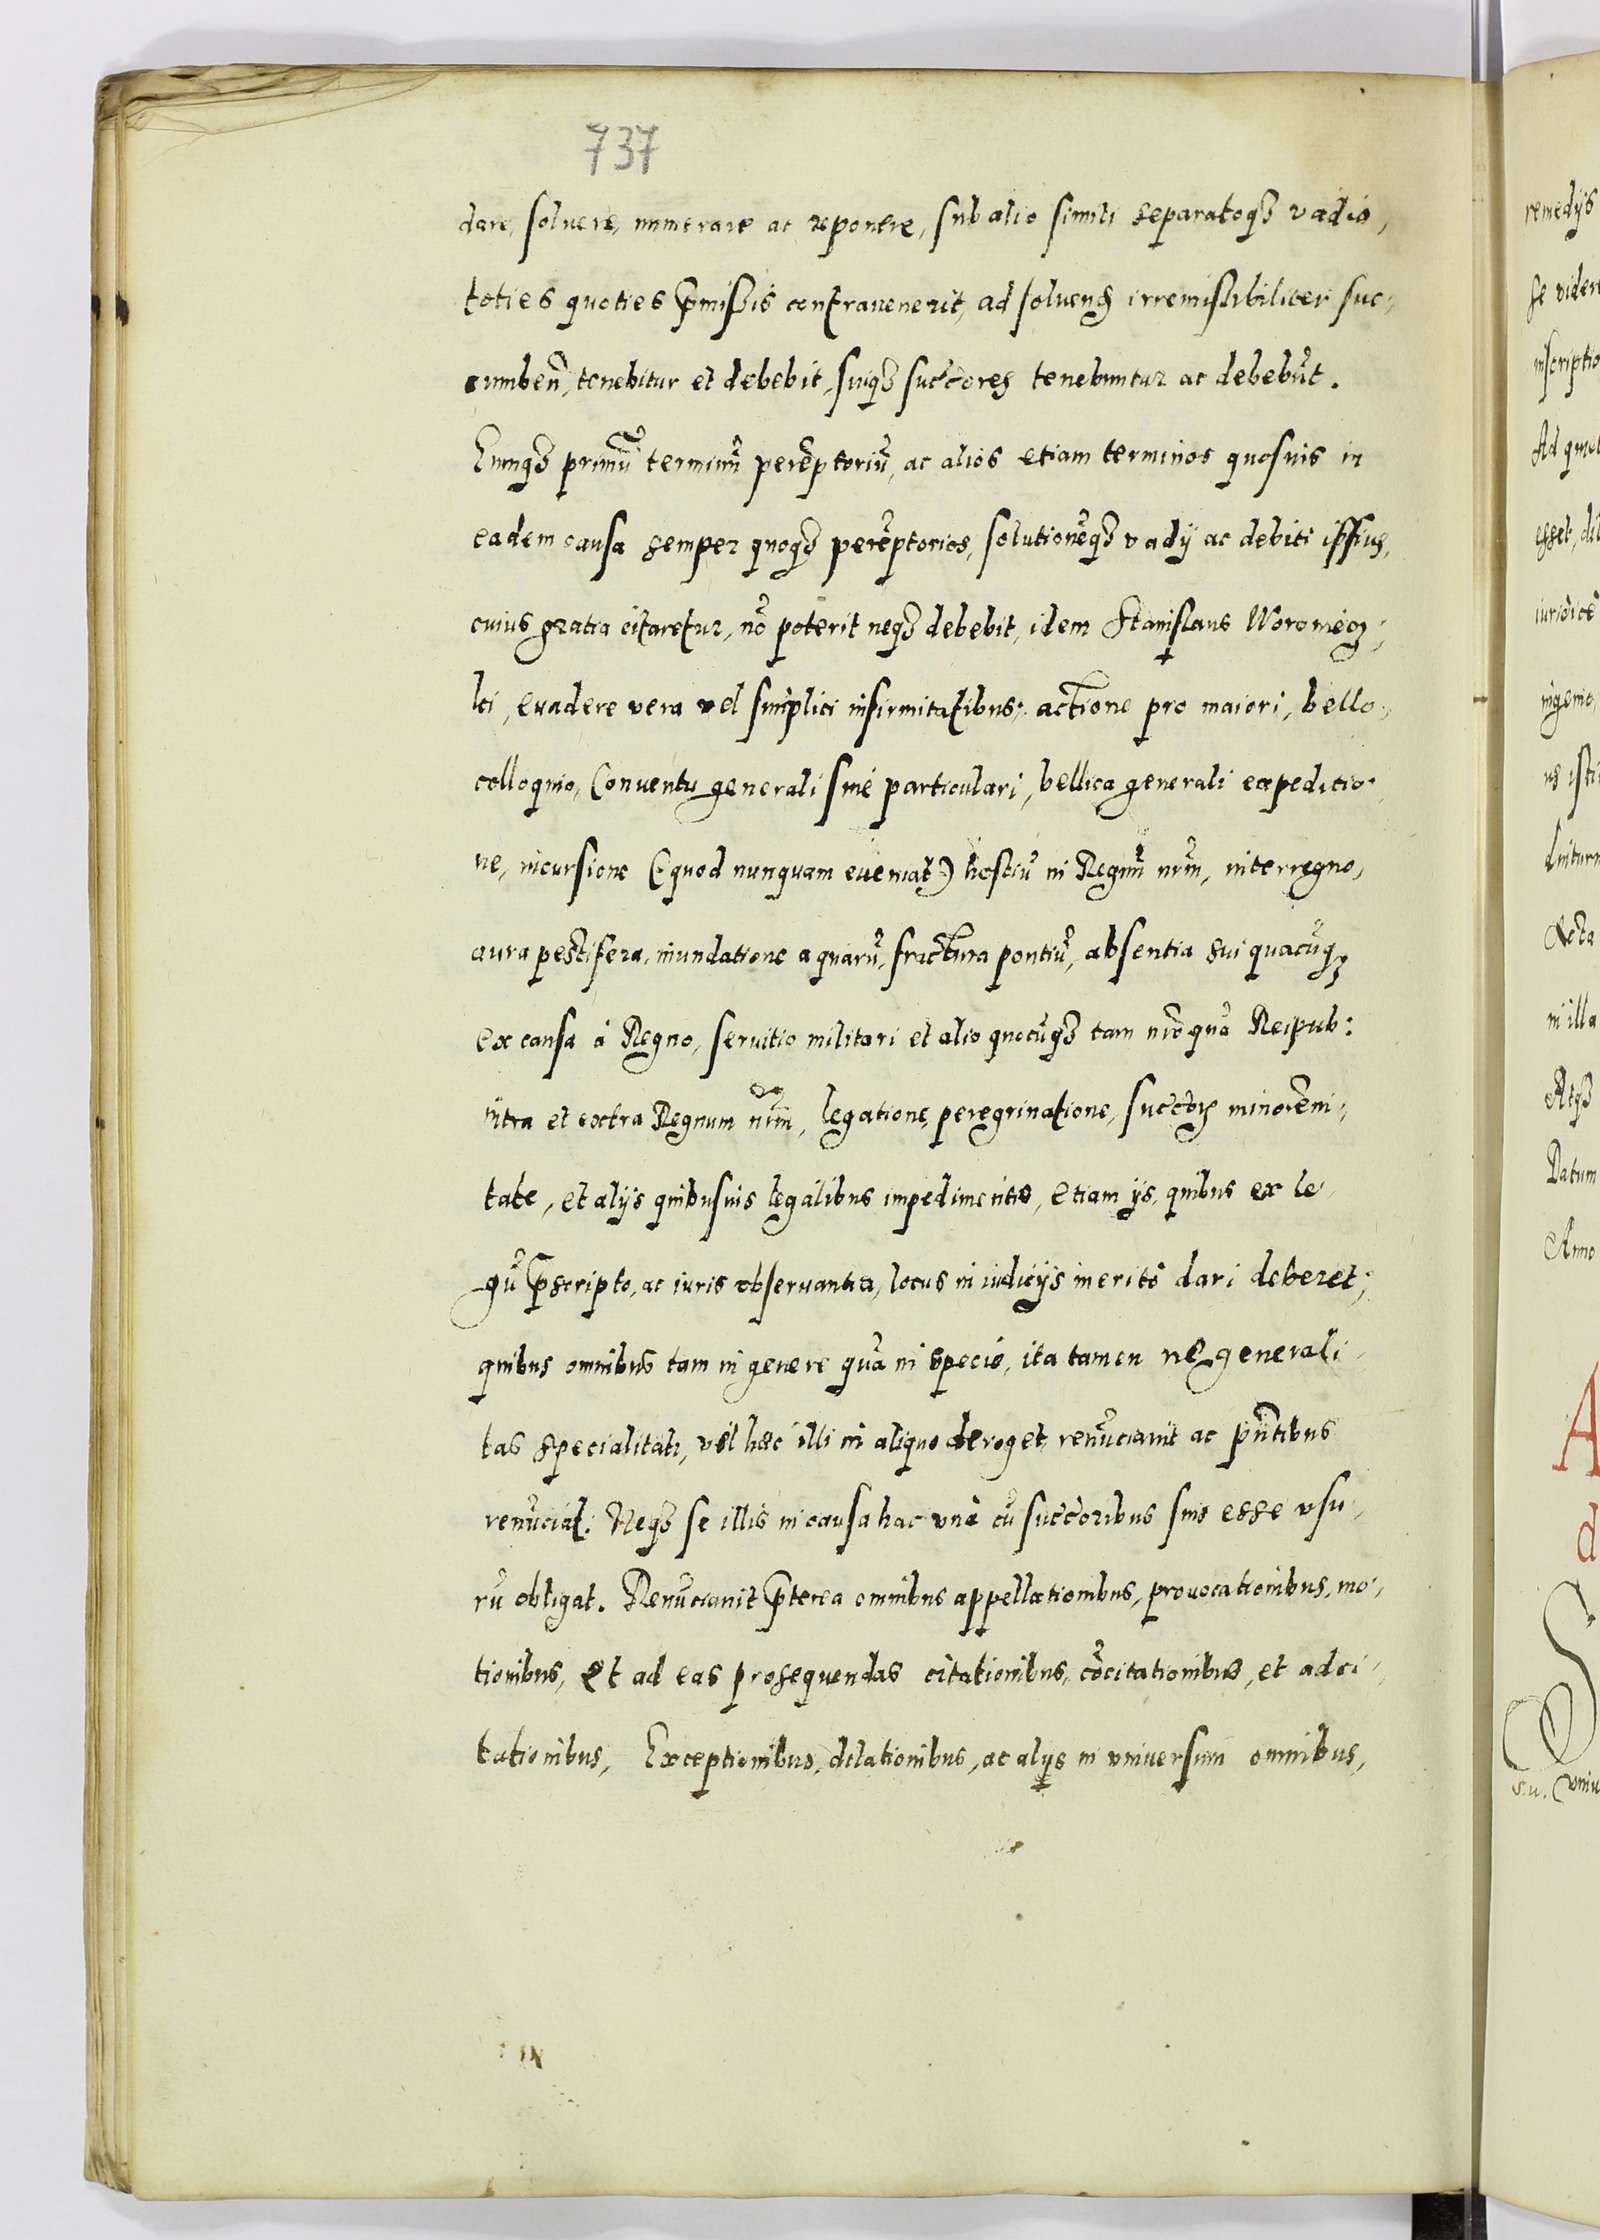 737
dare, soluere, numerare ac reponere, sub alio simili separatoq₃ vadio,
toties quoties p̃missis contrauenerit, ad soluend irremissibiliter suc-
cumben̄, tenebitur et debebit, suiq₃ succ̄ores tenebuntur ac debebūt.
Eumq₃ primū terminū perēptoriū, ac alios etiam terminos quosuis in
eadem causa semper quoq₃ perēptorios, solutionēq₃ vadij ac debiti ipsius,
cuius gratia citaretur, nō poterit neq₃ debebit, idem Stanislaus Woroniecz-
ki, euadere vera vel simplici infirmitatibus, actione pro maiori, bello,
colloquio, Conuentu generali siue particulari, bellica generali expeditio-
ne, incursione (quod nunquam eueniat) hostiū in Regnū nrm̄, interregno,
aura pestifera, inundatione aquarū, fractura pontiū, absentia sui quacūq₃
ex causa à Regno, seruitio militari et alio quocūq₃ tam nrō quā Reipub:
intra et extra Regnum nrm̄, legatione, peregrinatione, succ̄orꝫ minoreñi-
tate, et alijs quibusuis legalibus impedimentis, etiam ijs, quibus ex le-
gū p̃scripto, ac iuris obseruantia, locus in iudicijs meritò dari deberet;
quibus omnibus tam in genere quā in specie, ita tamen ne generali-
tas specialitati, vel hæc illi in aliquo deroget, renūciauit ac pñtibus
renūciat. Neq₃ se illis in causa hac vnà cū succ̄oribus suis esse vsu-
rū obligat. Renūciauit p̃terea omnibus appellationibus, prouocationibus, mo-
tionibus, et ad eas prosequendas citationibus, cōcitationibus, et adci-
tationibus, Exceptionibus, dilationibus, ac alijs in vniuersum omnibus,
remedijs
se videre
inscriptio
Ad
esset,
iuridicè
ingenio,
Acta
in illa
Atq₃
Datum
Anno
A
d
S